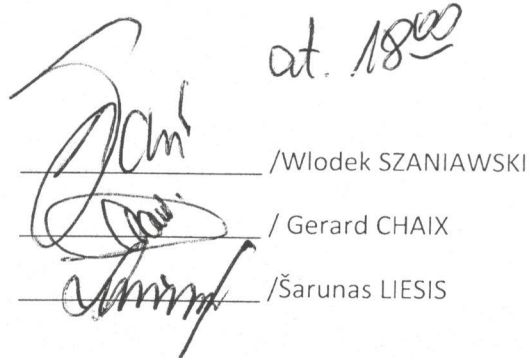 at. 18⁰⁰
/Wlodek SZANIAWSKI
/ Gerard CHAIX
/Šarunas LIESIS